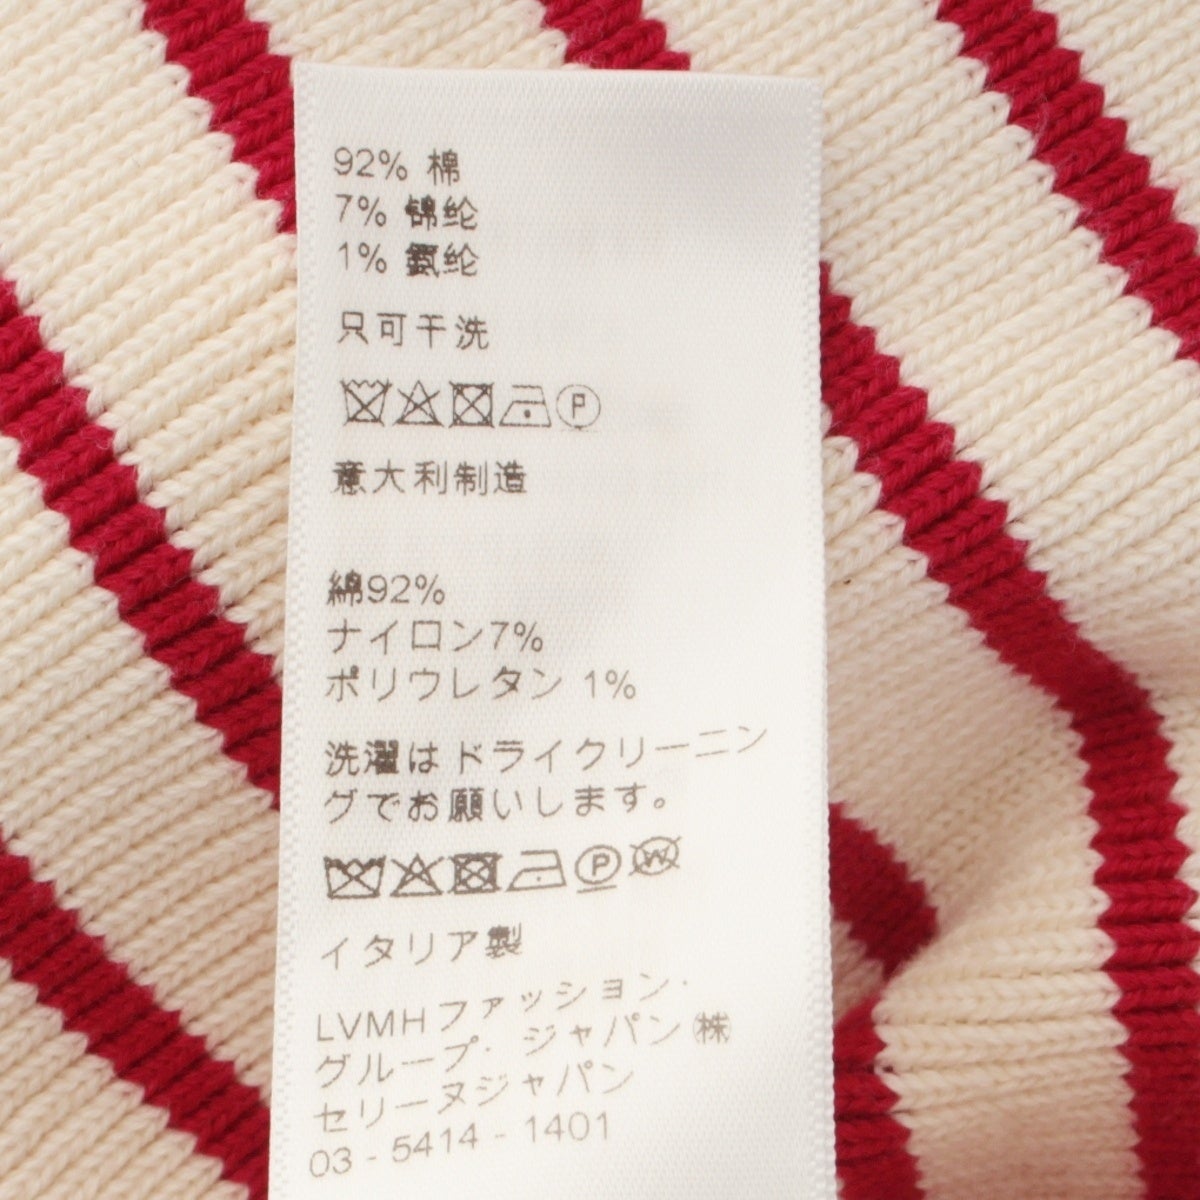 92% 棉
7% 锦纶
1% 氨纶
只可干洗
P
意大利制造
綿92%
ナイロン7%
ポリウレタン 1%
洗濯はドライクリーニン
グでお願いします。
P W
イタリア製
LVMHファッション・
グループ・ジャパン㈱
セリーヌジャパン
03 - 5414 - 1401